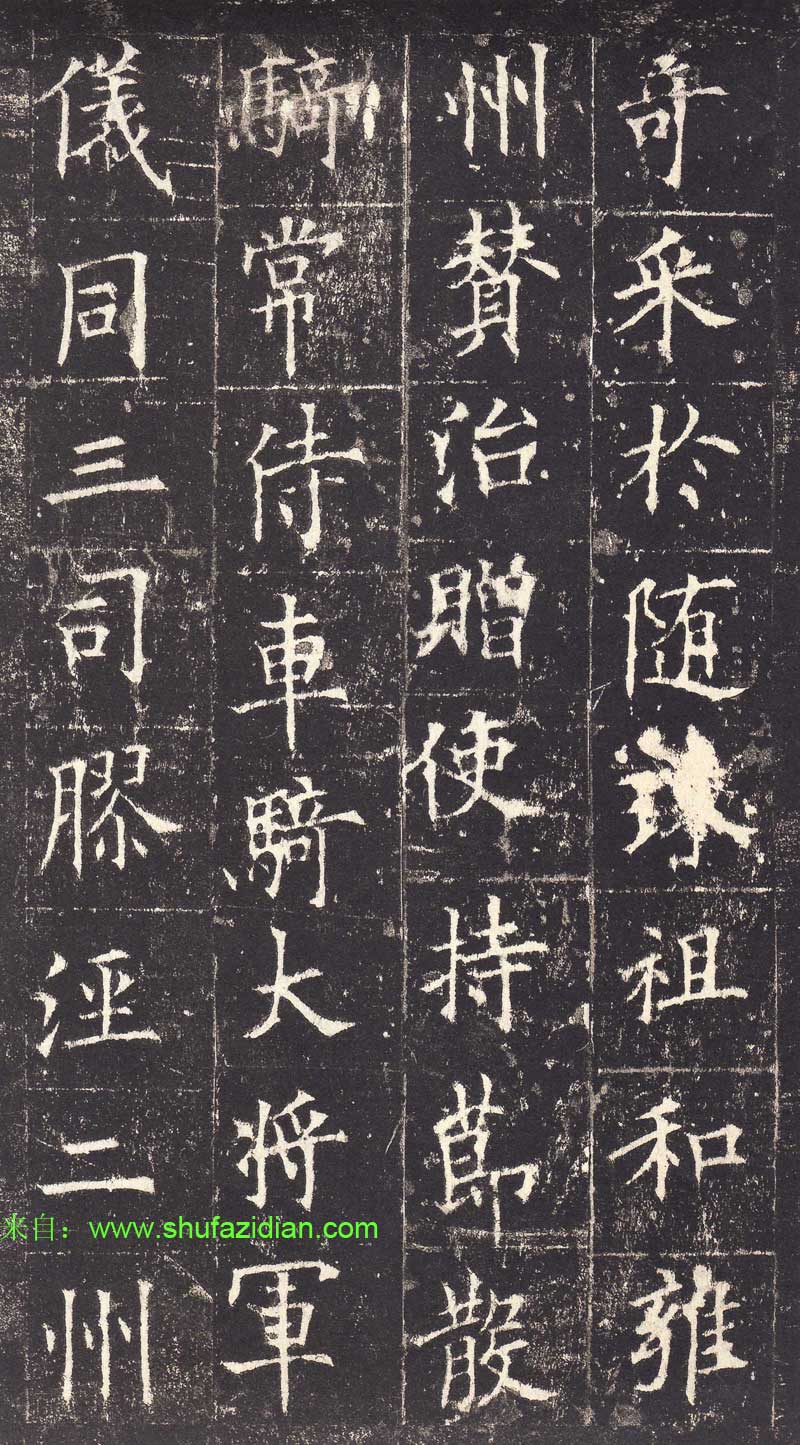 奇采於随珠祖和雍
州賛治贈使持莭散
騎常侍車騎大将軍
儀同三司膠涇二州
来自：www.shufazidian.com